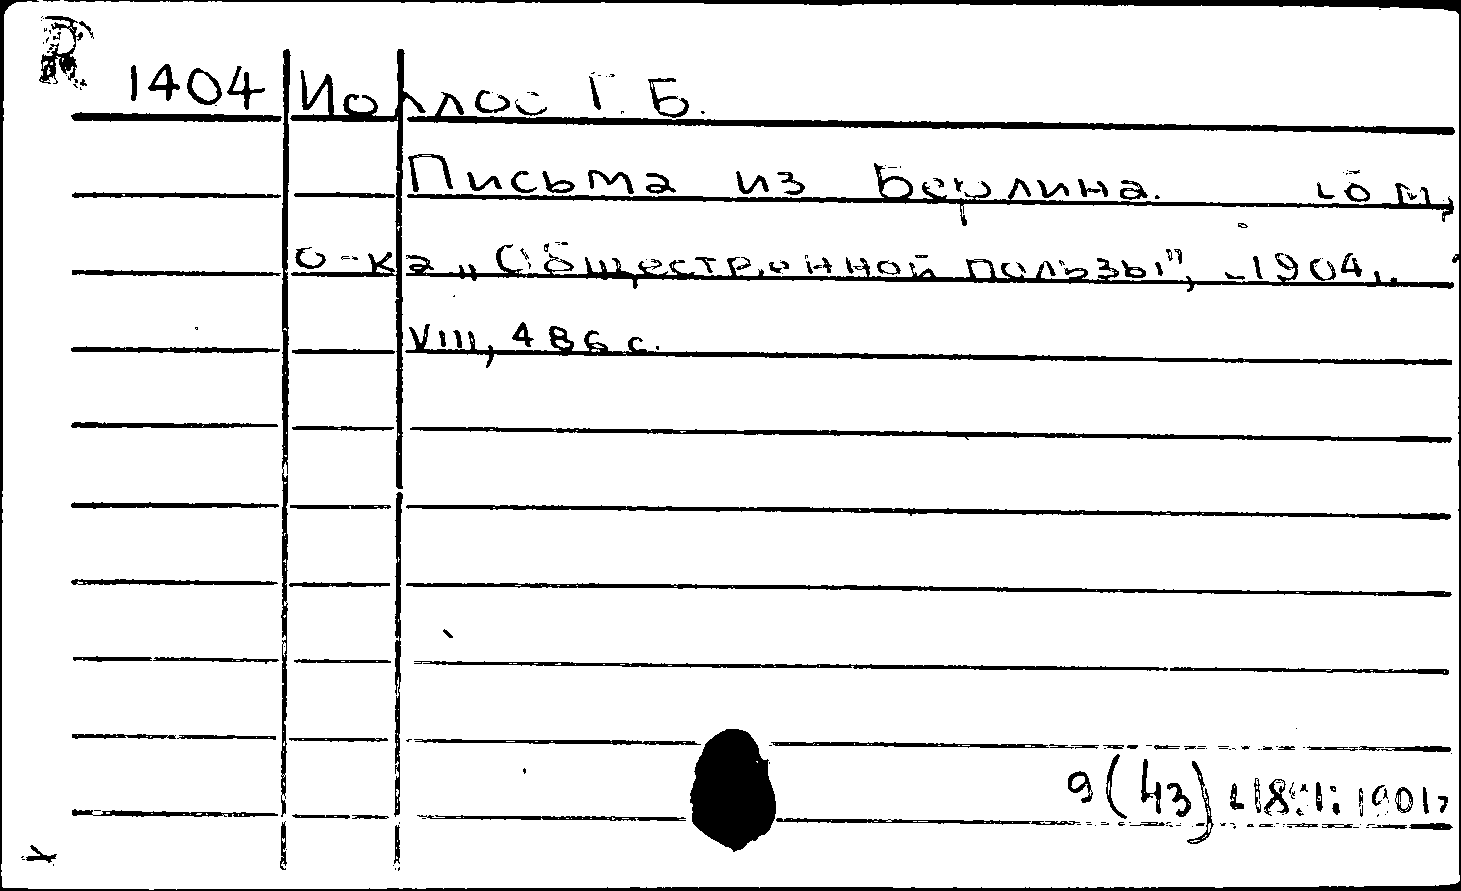 R
1404 Иоллос Г. Б.
Письма из Берлина.
о-ка „Общественной пользы", 1904,.
VIII, 486 с.
9(43)